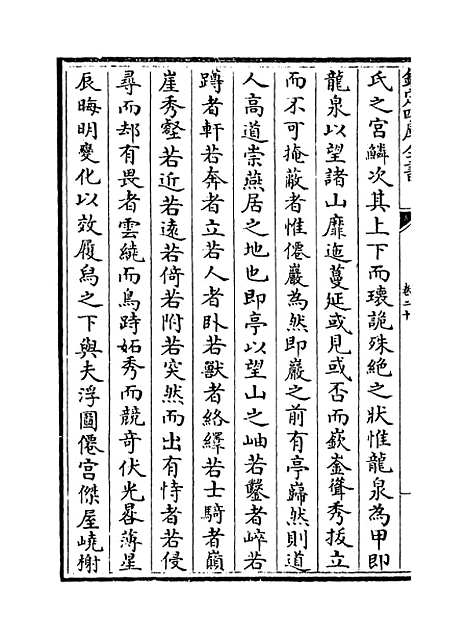 欽定四庫全書
卷二十
氏之宮鱗次其上下而瓌詭殊絶之狀惟龍泉為甲即
龍泉以望諸山靡迤蔓延或見或否而嶔崟聳秀拔立
而不可掩蔽者惟僊巖為然即巖之前有亭巋然則道
人高道崇燕居之地也即亭以望山之岫若鑿者崪若
蹲者軒若奔者立若人者卧若獸者絡繹若士騎者巔
崖秀壑若近若遠若倚若附若突然而出有恃者若侵
尋而却有畏者雲繞而鳥跱妬秀而競奇伏光晷薄星
辰晦明變化以效履舄之下與夫浮圖僊宮傑屋嶢榭